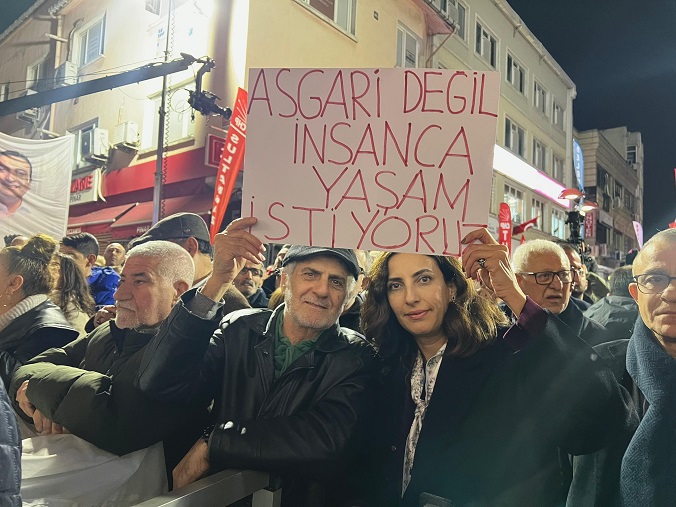 ASGARİ DEĞİL
İNSANCA
YAŞAM
İSTİYORUZ